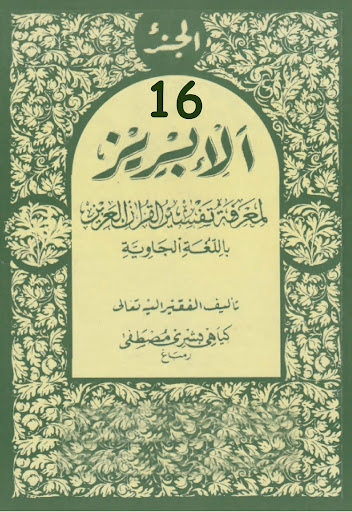 الجزء
16
الإبريز
لمعرفة تفسير القرآن العزيز
باللغة الجاوية
تأليف الفقير اليه تعالى
كياهى بشرى مصطفى
رمباع